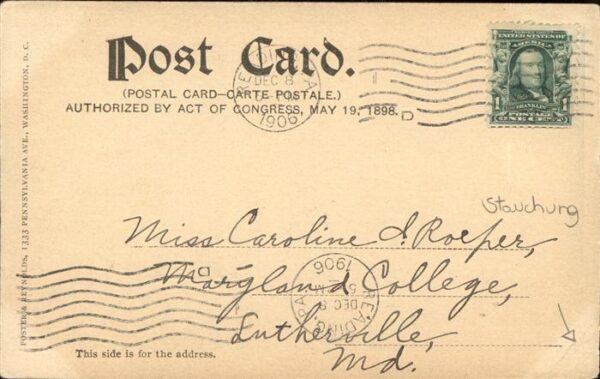 Post Card.
(POSTAL CARD—CARTE POSTALE.)
AUTHORIZED BY ACT OF CONGRESS, MAY 19, 1898.
READING PA
DEC 8
1906
D
UNITED STATES OF AMERICA
FRANKLIN
1 1
POSTAGE
ONE CENT
Stouchurg
Miss Caroline I. Roeper,
Maryland College,
Lutherville,
Md.
READING PA
DEC 8
5
1906
This side is for the address.
POSTER & REYNOLDS, 1333 PENNSYLVANIA AVE., WASHINGTON, D. C.